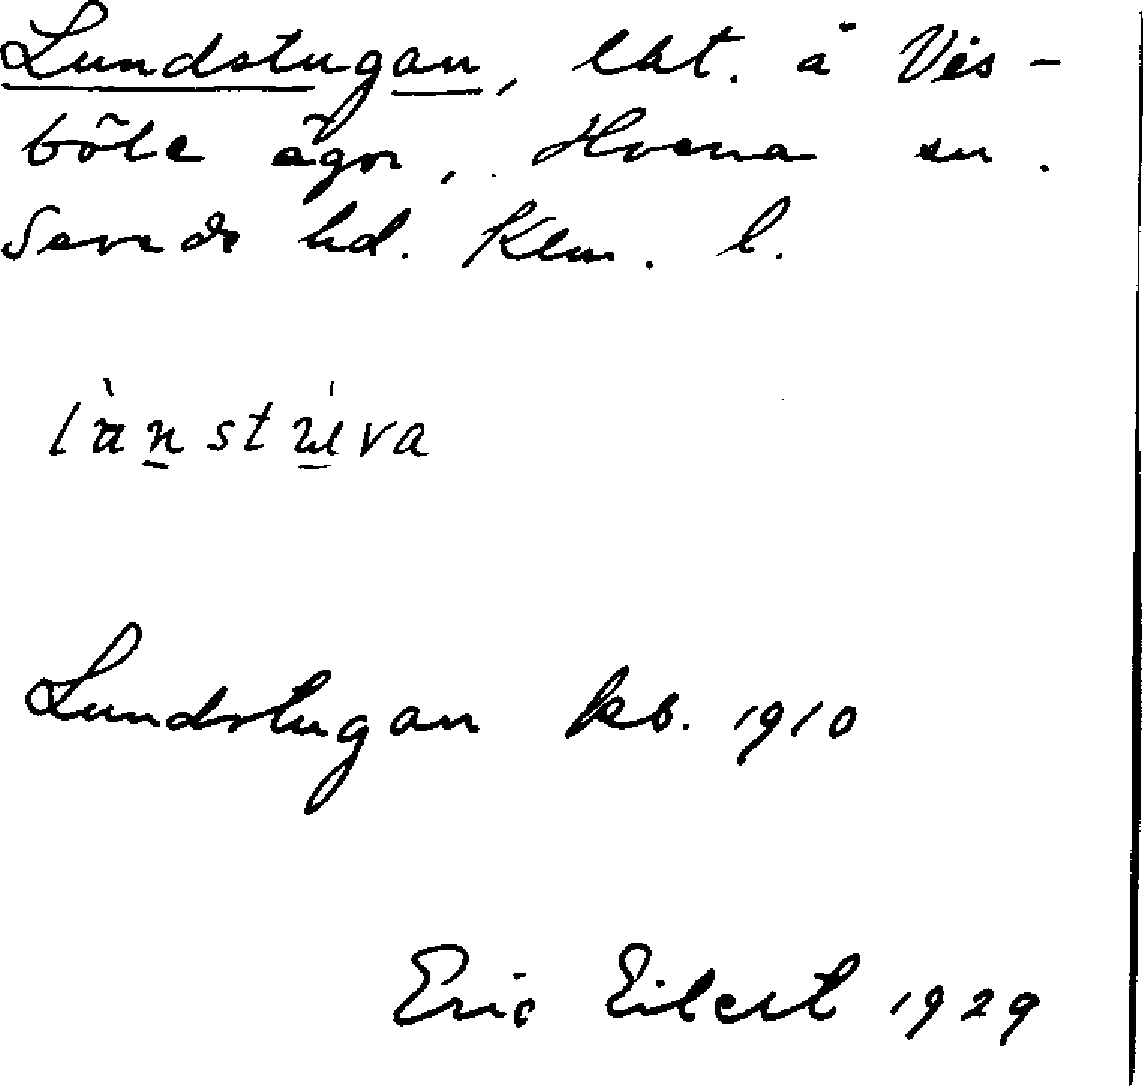 Lundstugan, lht. å Vis-
böle ägor, Hvena sn.
Sevede hd. Klm. l.
lànstúva
Lundstugan kb. 1910
Eric Eilert 1929